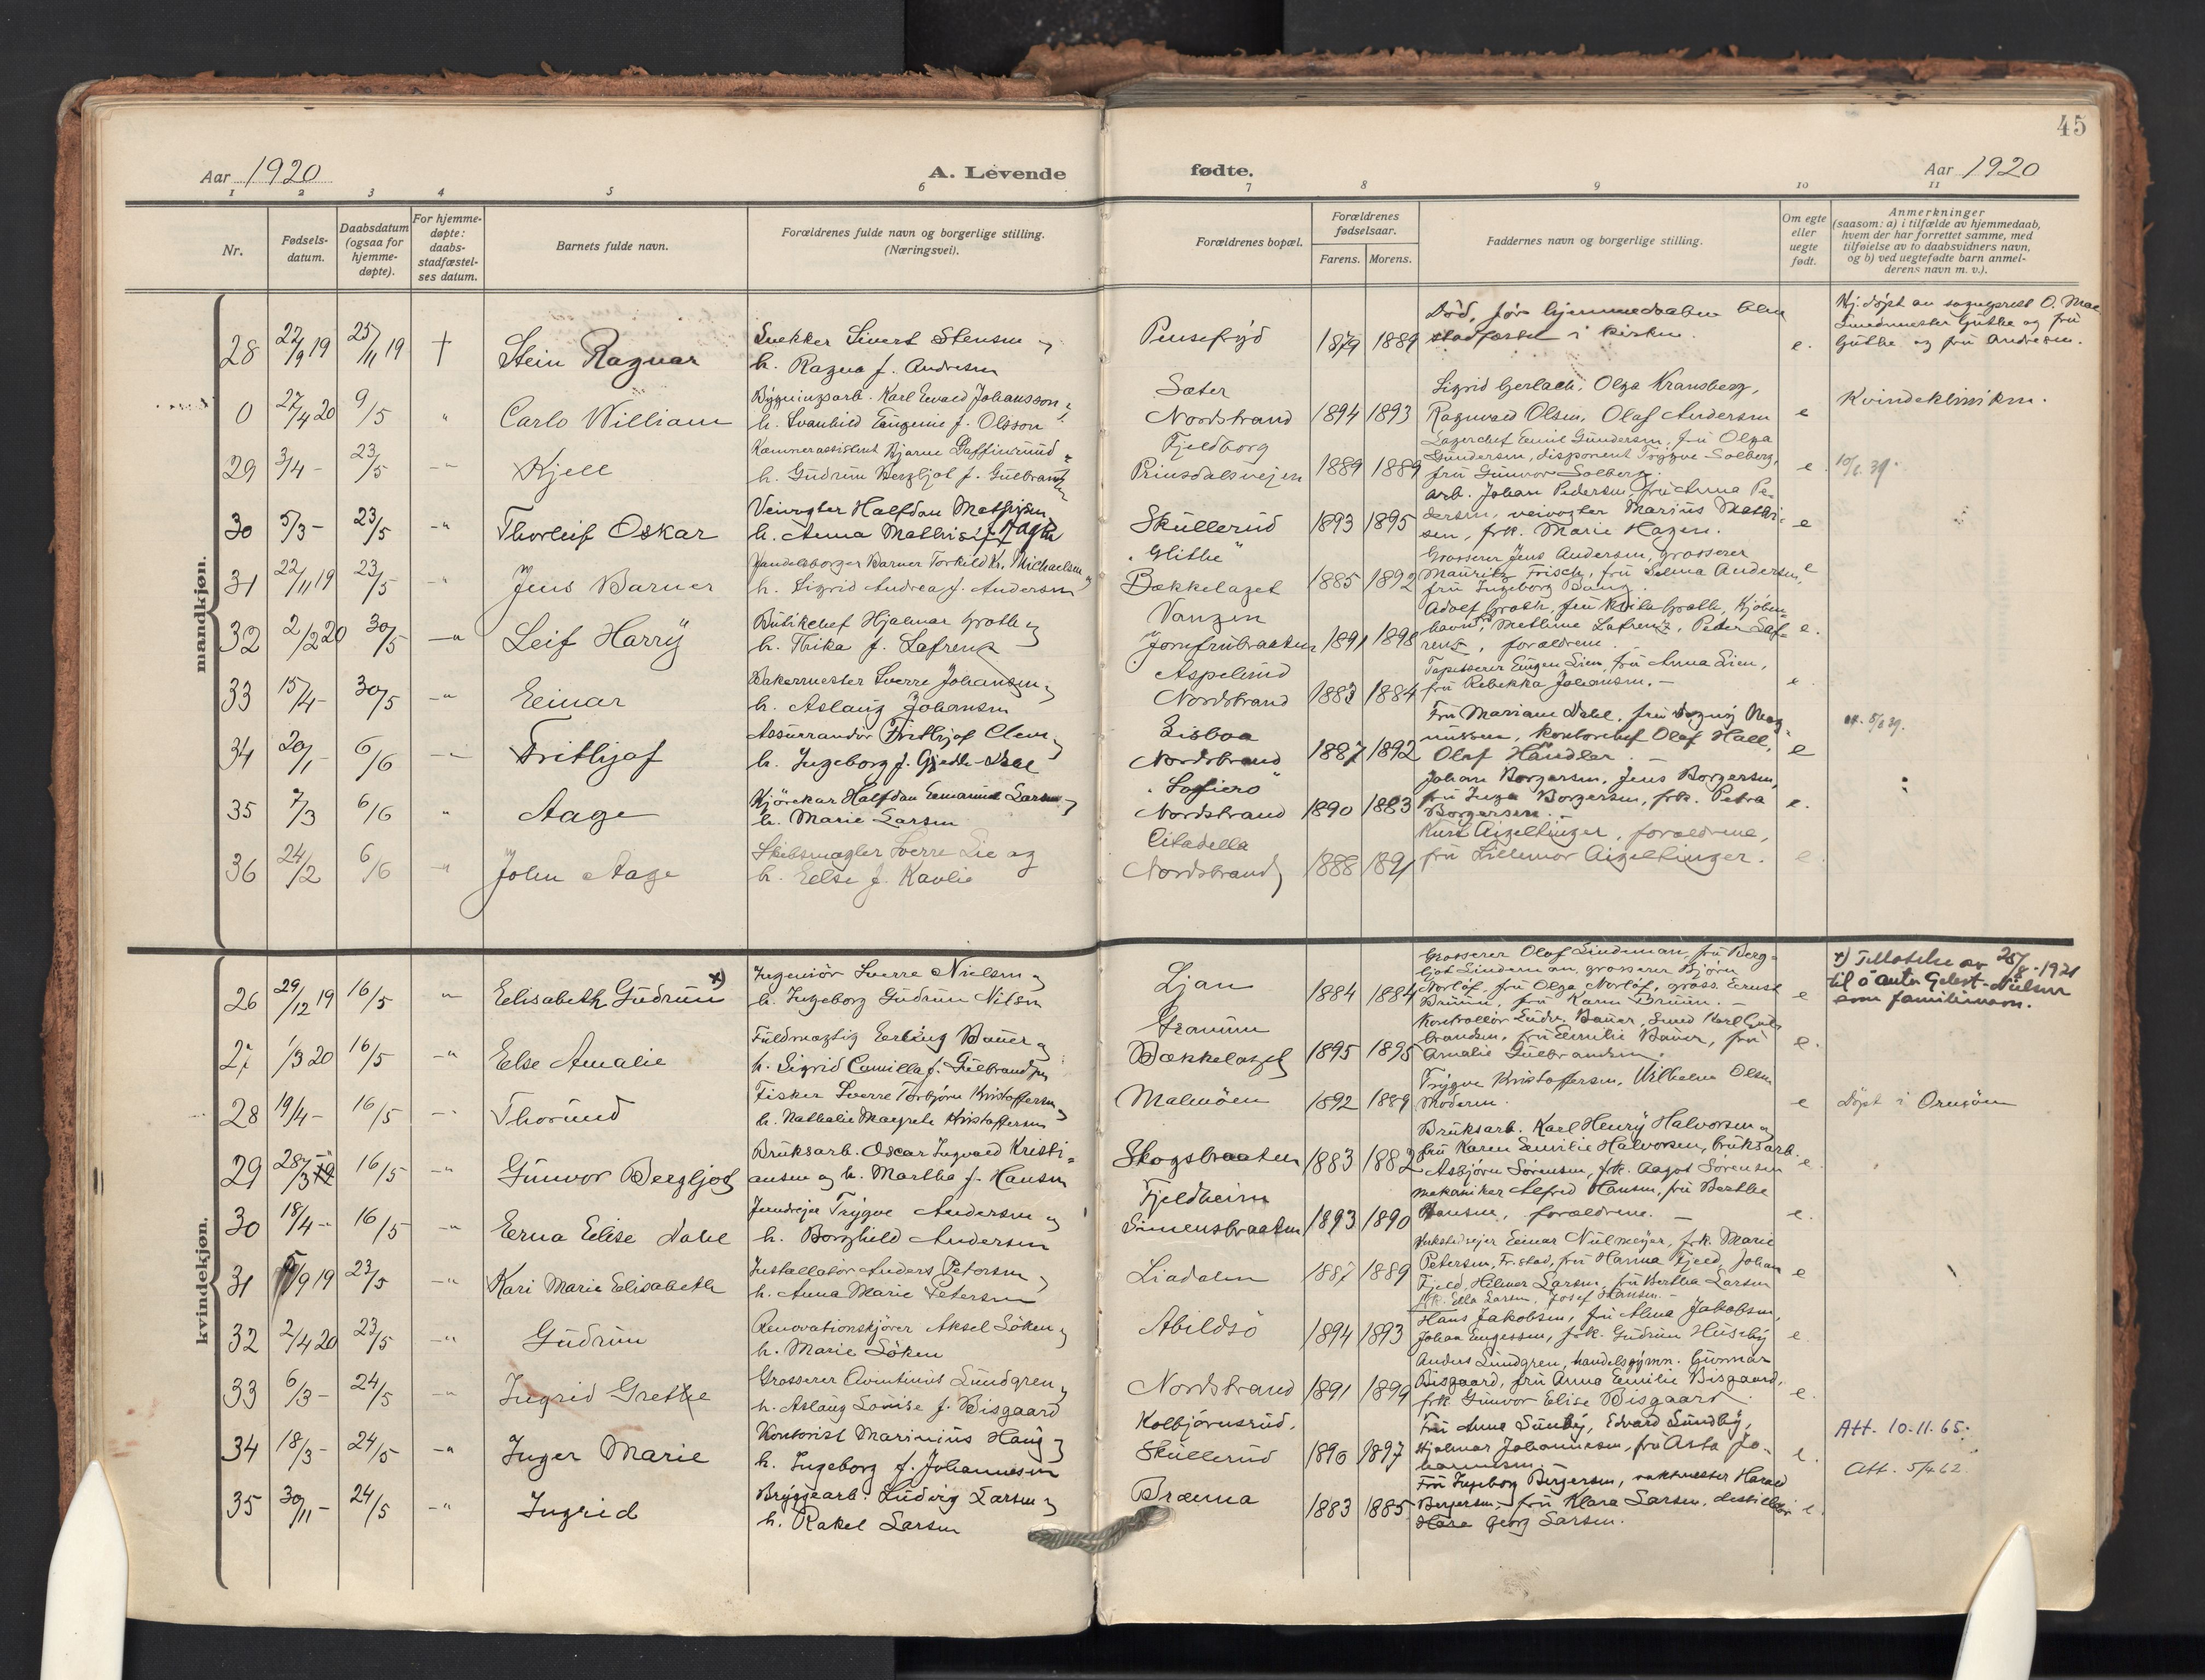 45
Aar 1920
A. Levende
fødte.
Aar 1920
1 2 3 4 5 6 7 8 9 10 11
Nr.
Fødsels-
datum.
Daabsdatum
(ogsaa for
hjemme-
døpte).
For hjemme-
døpte:
daabs-
stadfæstel-
ses datum.
Barnets fulde navn.
Forældrenes fulde navn og borgerlige stilling.
(Næringsvei).
Forældrenes bopæl.
Forældrenes
fødselsaar.
Farens. Morens.
Faddernes navn og borgerlige stilling.
Om egte
eller
uegte
født.
Anmerkninger
(saasom: a) i tilfælde av hjemmedaab,
hvem der har forrettet samme, med
tilføielse av to daabsvidners navn,
og b) ved uegtefødte barn anmel-
derens navn m. v.).
mandkjøn.
28 27/9 19 25/11 19 † Stein Ragnar
Snekker Sivert Stensen og
h. Ragna f. Andresen
1879 1889
Död, för hjemmedaaben blev
stadfæstet i kirken.
e.
Hj. döpt av sogneprest O.
0 27/4 20 9/5 " Carlo William
Bygningsarb. Karl Ewald Johansson og
h. Svanhild Eugenie f. Olsson
Sæter
Nordstrand
1894 1893
Sigrid Gerlach, Olga Kransberg,
Ragnvald Olsen, Olaf Andersen
e
Kvindeklinikken.
29 3/4 - 23/5 -"- Kjell
Kæmnerassistent Bjarne
h. Gudrun Bergljot f.
Fjeldborg
Prinsdalsveien
1889 1889
Lagerchef Emil Gundersen, fru Olga
Gundersen, disponent Trygve Solberg,
fru Gunvor Solberg.
e
10/6. 39.
30 5/3 - 23/5 -" Thorleif Oskar
Veivogter Halfdan Mathisen
h. Anna Mathisen f. Hagen
Skullerud
1893 1895
arb. Johan Pedersen, fru Anna Pe-
dersen, veivogter Marius Mathi-
sen, frk. Marie Hagen.
e
31 22/11 19 23/5 -" Jens Barner
Handelsborger Barner Torkild Kr. Michaelsen og
h. Sigrid Andrea f. Andersen
Bækkelaget
1885 1892
Grosserer Jens Andersen, grosserer
Mauritz Frisch, fru Selma Andersen,
fru Ingeborg Bang.
e
32 2/2 20 30/5 -" Leif Harry
Butikchef Hjalmar Groth og
h. Thika f. Lafrenz
Vangen
Jomfrubraaten
1891 1898
Adolf Groth, fru
forældrene
e.
33 15/4 - 30/5 -" Einar
Bakermester Sverre Johansen og
h. Aslaug Johansen
Aspelund
Nordstrand
1883 1884
Tapetserer Eugen Lien, fru Anna Lien,
fru Rebekka Johansen. -
e.
34 20/1 - 6/6 -"- Frithjof
Assurandör Frithjof Clem og
h. Ingeborg f.
Lisboa
Nordstrand
1887 1892
Fru Mariane Dahl, fru Dagny Mag-
nussen, kontorchef Olaf Hall,
Olaf Händler. -
e
35 7/3 6/6 " Aage
Kjörekar Halfdan Emanuel Larsen og
h. Marie Larsen
"Sofiero"
Nordstrand
1890 1883
Johan Borgersen, Jens Borgersen,
fru Inga Borgersen, frk. Petra
Borgersen. -
e.
36 24/2 6/6 -" John Aage
Skibsmægler Sverre Lie og
h. Else f. Kavlie
Citadella
Nordstrand
1888 1891
Kurt Aigeltinger, forældrene,
fru Lillemor Aigeltinger.
e.
kvindekjøn.
26 29/12 19 16/5 " Elisabeth Gudrun x)
Ingeniör Sverre Nielsen og
h. Ingeborg Gudrun Nilsen
Ljan
1884 1884
Grosserer Olaf Lindeman, fru Berg-
ljot Lindeman, grosserer Björn
Norlöf, fru Olga Norlöf, gross. Ernst
Bruun, fru Karen Bruun. -
e
x) Tillatelse av 25/8 - 1921
til å anta -Nielsen
som familienavn.
27 1/3 20 16/5 -" Else Amalie
Fuldmægtig Erling Bauer og
h. Sigrid Camilla f. Gulbrandsen
Granum
Bækkelaget
1895 1895
Kontrollör Ludv. Bauer, Smed Karl Gul-
brandsen, fru Emilie Bauer, fru
Amalie Gulbrandsen.
e.
28 19/4 - 16/5 -"- Thorund
Fisker Sverre Torbjörn Kristoffersen og
h. Nathalie Margrete Kristoffersen
Malmöen
1892 1889
Trygve Kristoffersen, Wilhelm Olsen
Moderen.
e
Döpt i Ormöen
29 28/3 16/5 -" Gunvor Bergljot
Bruksarb. Oscar Ingvald Kristi-
ansen og h. Martha f. Hansen
Skogsbraaten
1883 1882
Bruksarb. Karl Henry Halvorsen og
fru Karen Emilie Halvorsen, bruksarb.
Asbjörn Sörensen, frk. Aagot Sörensen
e.
30 18/4 - 16/5 -" Erna Elise Dahl
Jerndreier Trygve Andersen og
h. Borghild Andersen
Fjeldheim
Simensbraaten
1893 1890
Mekaniker Alfred Hansen, fru Berthe
Hansen, forældrene. -
e.
31 /9 19 23/5 -" Kari Marie Elisabeth
Installatör Anders Petersen og
h. Anna Marie Petersen
Liadalen
1887 1889
Verkstedeier Einar Nielmeyer, frk. Marie
Petersen, Fr.stad, fru Hanna Fjeld, Johan
Fjeld, Hilmer Larsen, fru Bertha Larsen
frk. Ella Larsen, Josef Hansen. -
e
32 2/4 20 23/5 -" Gudrun
Renovationskjörer Aksel Löken og
h. Marie Löken
Abildsö
1894 1893
Hans Jakobsen, fru Alma Jakobsen,
Johan Engessen, frk. Gudrun Huseby
e
33 6/3 - 24/5 -" Ingrid Grethe
Grosserer Lundgren og
h. Aslaug Louise f. Bisgaard
Nordstrand
1891 1899
Anders Lundgren, handelsgymn. Gunnar
Bisgaard, fru Anna Emilie Bisgaard,
frk. Gunvor Elise Bisgaard.
e.
34 18/3 - 24/5 -" Inger Marie
Kontorist Marinius Haug og
h. Ingeborg f. Johannesen
Kolbjörnsrud,
Skullerud
1890 1897
Fru Anna Sundby, Edvard Sundby,
Hjalmar Johannesen, fru Asta Jo-
hannesen. -
e.
Att. 10.11.65.
Att. 5/4 62.
35 30/11 - 24/5 -" Ingrid
Bryggearb. Ludvig Larsen og
h. Rakel Larsen
Brænna
1883 1885
Fru Ingeborg Bergersen, vaktmester Harald
Bergersen, fru Klara Larsen, destillatör
Georg Larsen.
e.